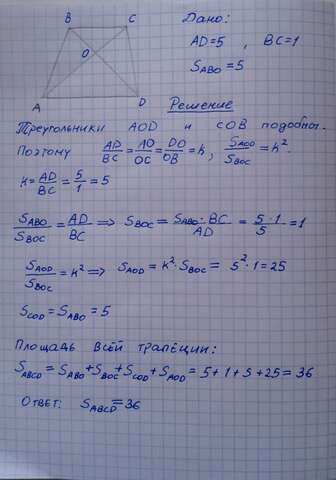 B C
O
A D
Дано:
AD=5 , BC=1
S_ABO=5
Решение
Треугольники AOD и COB подобны.
Поэтому AD/BC=AO/OC=DO/OB=k, S_AOD/S_BOC=k².
k=AD/BC=5/1=5
S_ABO/S_BOC=AD/BC ⟹ S_BOC=S_ABO·BC/AD=5·1/5=1
S_AOD/S_BOC=k² ⟹ S_AOD=k²·S_BOC=5²·1=25
S_COD=S_ABO=5
Площадь всей трапеции:
S_ABCD=S_ABO+S_BOC+S_COD+S_AOD=5+1+5+25=36
Ответ: S_ABCD=36